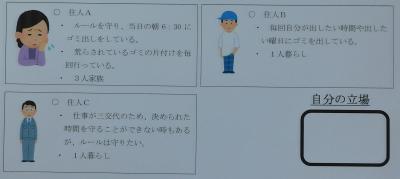 ○ 住人A
・ ルールを守り、当日の朝6：30に
ゴミ出しをしている。
・ 荒らされているゴミの片付けを毎
回行っている。
・ 3人家族
○ 住人B
・ 毎回自分が出したい時間や出した
い曜日にゴミを出している。
・ 1人暮らし
○ 住人C
・ 仕事が三交代のため、決められた
時間を守ることができない時もある
が、ルールは守りたい。
・ 1人暮らし
自分の立場